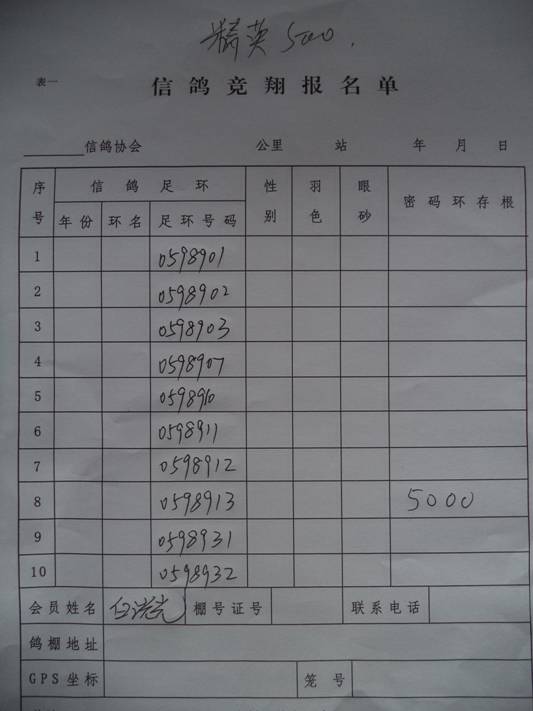 精英500.
表一
信鸽竞翔报名单
________信鸽协会 公里 站 年 月 日
序号 信鸽足环 性别 羽色 眼砂 密码环存根
年份 环名 足环号码
1 0598901
2 0598902
3 0598903
4 0598907
5 0598910
6 0598911
7 0598912
8 0598913 5000
9 0598931
10 0598932
会员姓名 棚号证号 联系电话
鸽棚地址
GPS坐标 笼号